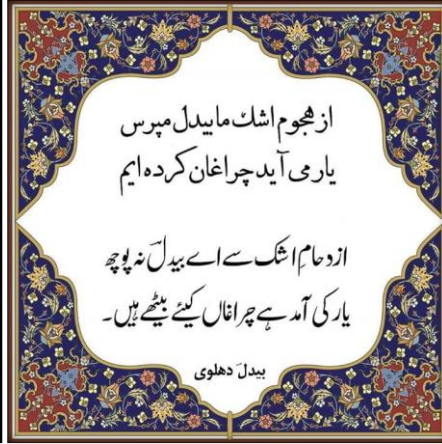 از هجوم اشک ما بیدل مپرس
یار می آید چراغان کرده ایم
ازدحامِ اشک سے اے بیدلؔ نہ پوچھ
یار کی آمد ہے چراغاں کیئے بیٹھے ہیں۔
بیدلؔ دهلوی